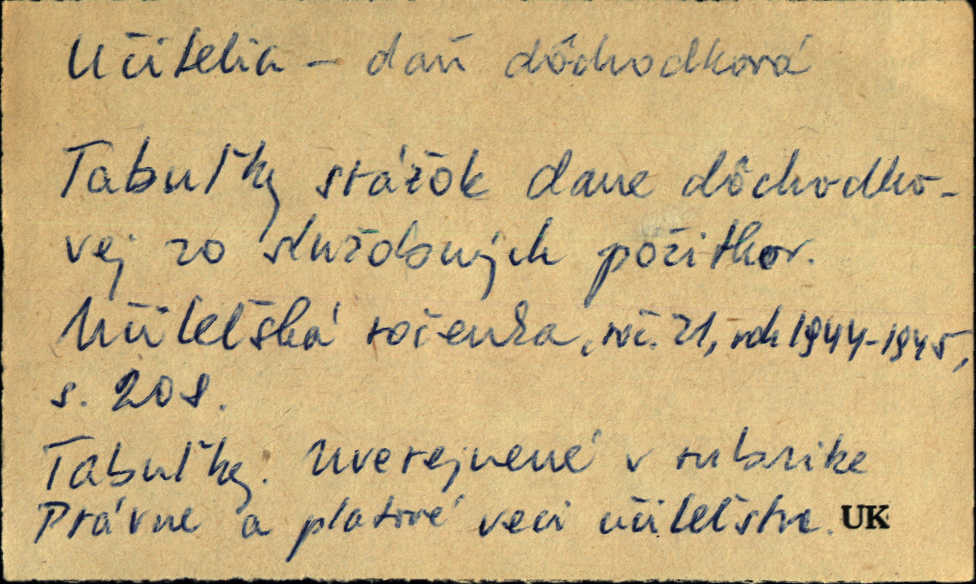 Učitelia – daň dôchodková
Tabuľky srážok dane dôchodko-
vej zo služobných požitkov.
Učiteľská ročenka, roč. 21, rok 1944-1945,
s. 208.
Tabuľky. Uverejnené v rubrike
Právne a platové veci učiteľstva. UK